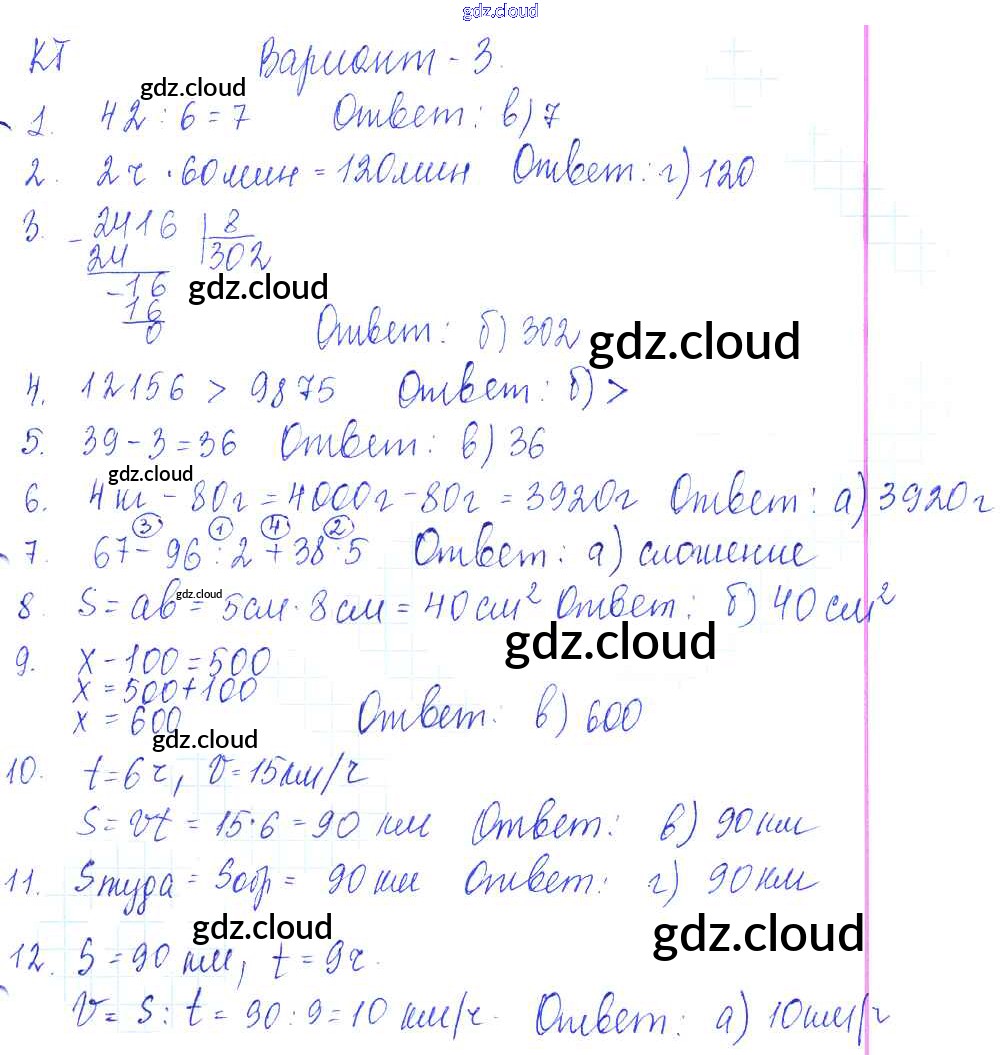 gdz.cloud
КТ Вариант - 3.
gdz.cloud
1. 42 : 6 = 7 Ответ: в) 7
2. 2ч · 60мин = 120мин Ответ: г) 120
3. - 2416 | 8
24 302
- 16
gdz.cloud
16
0 Ответ: б) 302
gdz.cloud
4. 12156 > 9875 Ответ: б) >
5. 39 - 3 = 36 Ответ: в) 36
gdz.cloud
6. 4кг - 80г = 4000г - 80г = 3920г Ответ: а) 3920г
③ ① ④ ②
7. 67 - 96 : 2 + 38 · 5 Ответ: а) сложение
gdz.cloud
8. S = ab = 5см · 8см = 40см² Ответ: б) 40см²
gdz.cloud
9. x - 100 = 500
x = 500 + 100
x = 600 Ответ: в) 600
gdz.cloud
10. t = 6ч, v = 15км/ч
S = vt = 15 · 6 = 90 км Ответ: в) 90км
11. Sтуда = Sобр = 90 км Ответ: г) 90км
gdz.cloud
gdz.cloud
12. S = 90 км, t = 9ч.
v = S : t = 90 : 9 = 10 км/ч. Ответ: а) 10км/ч